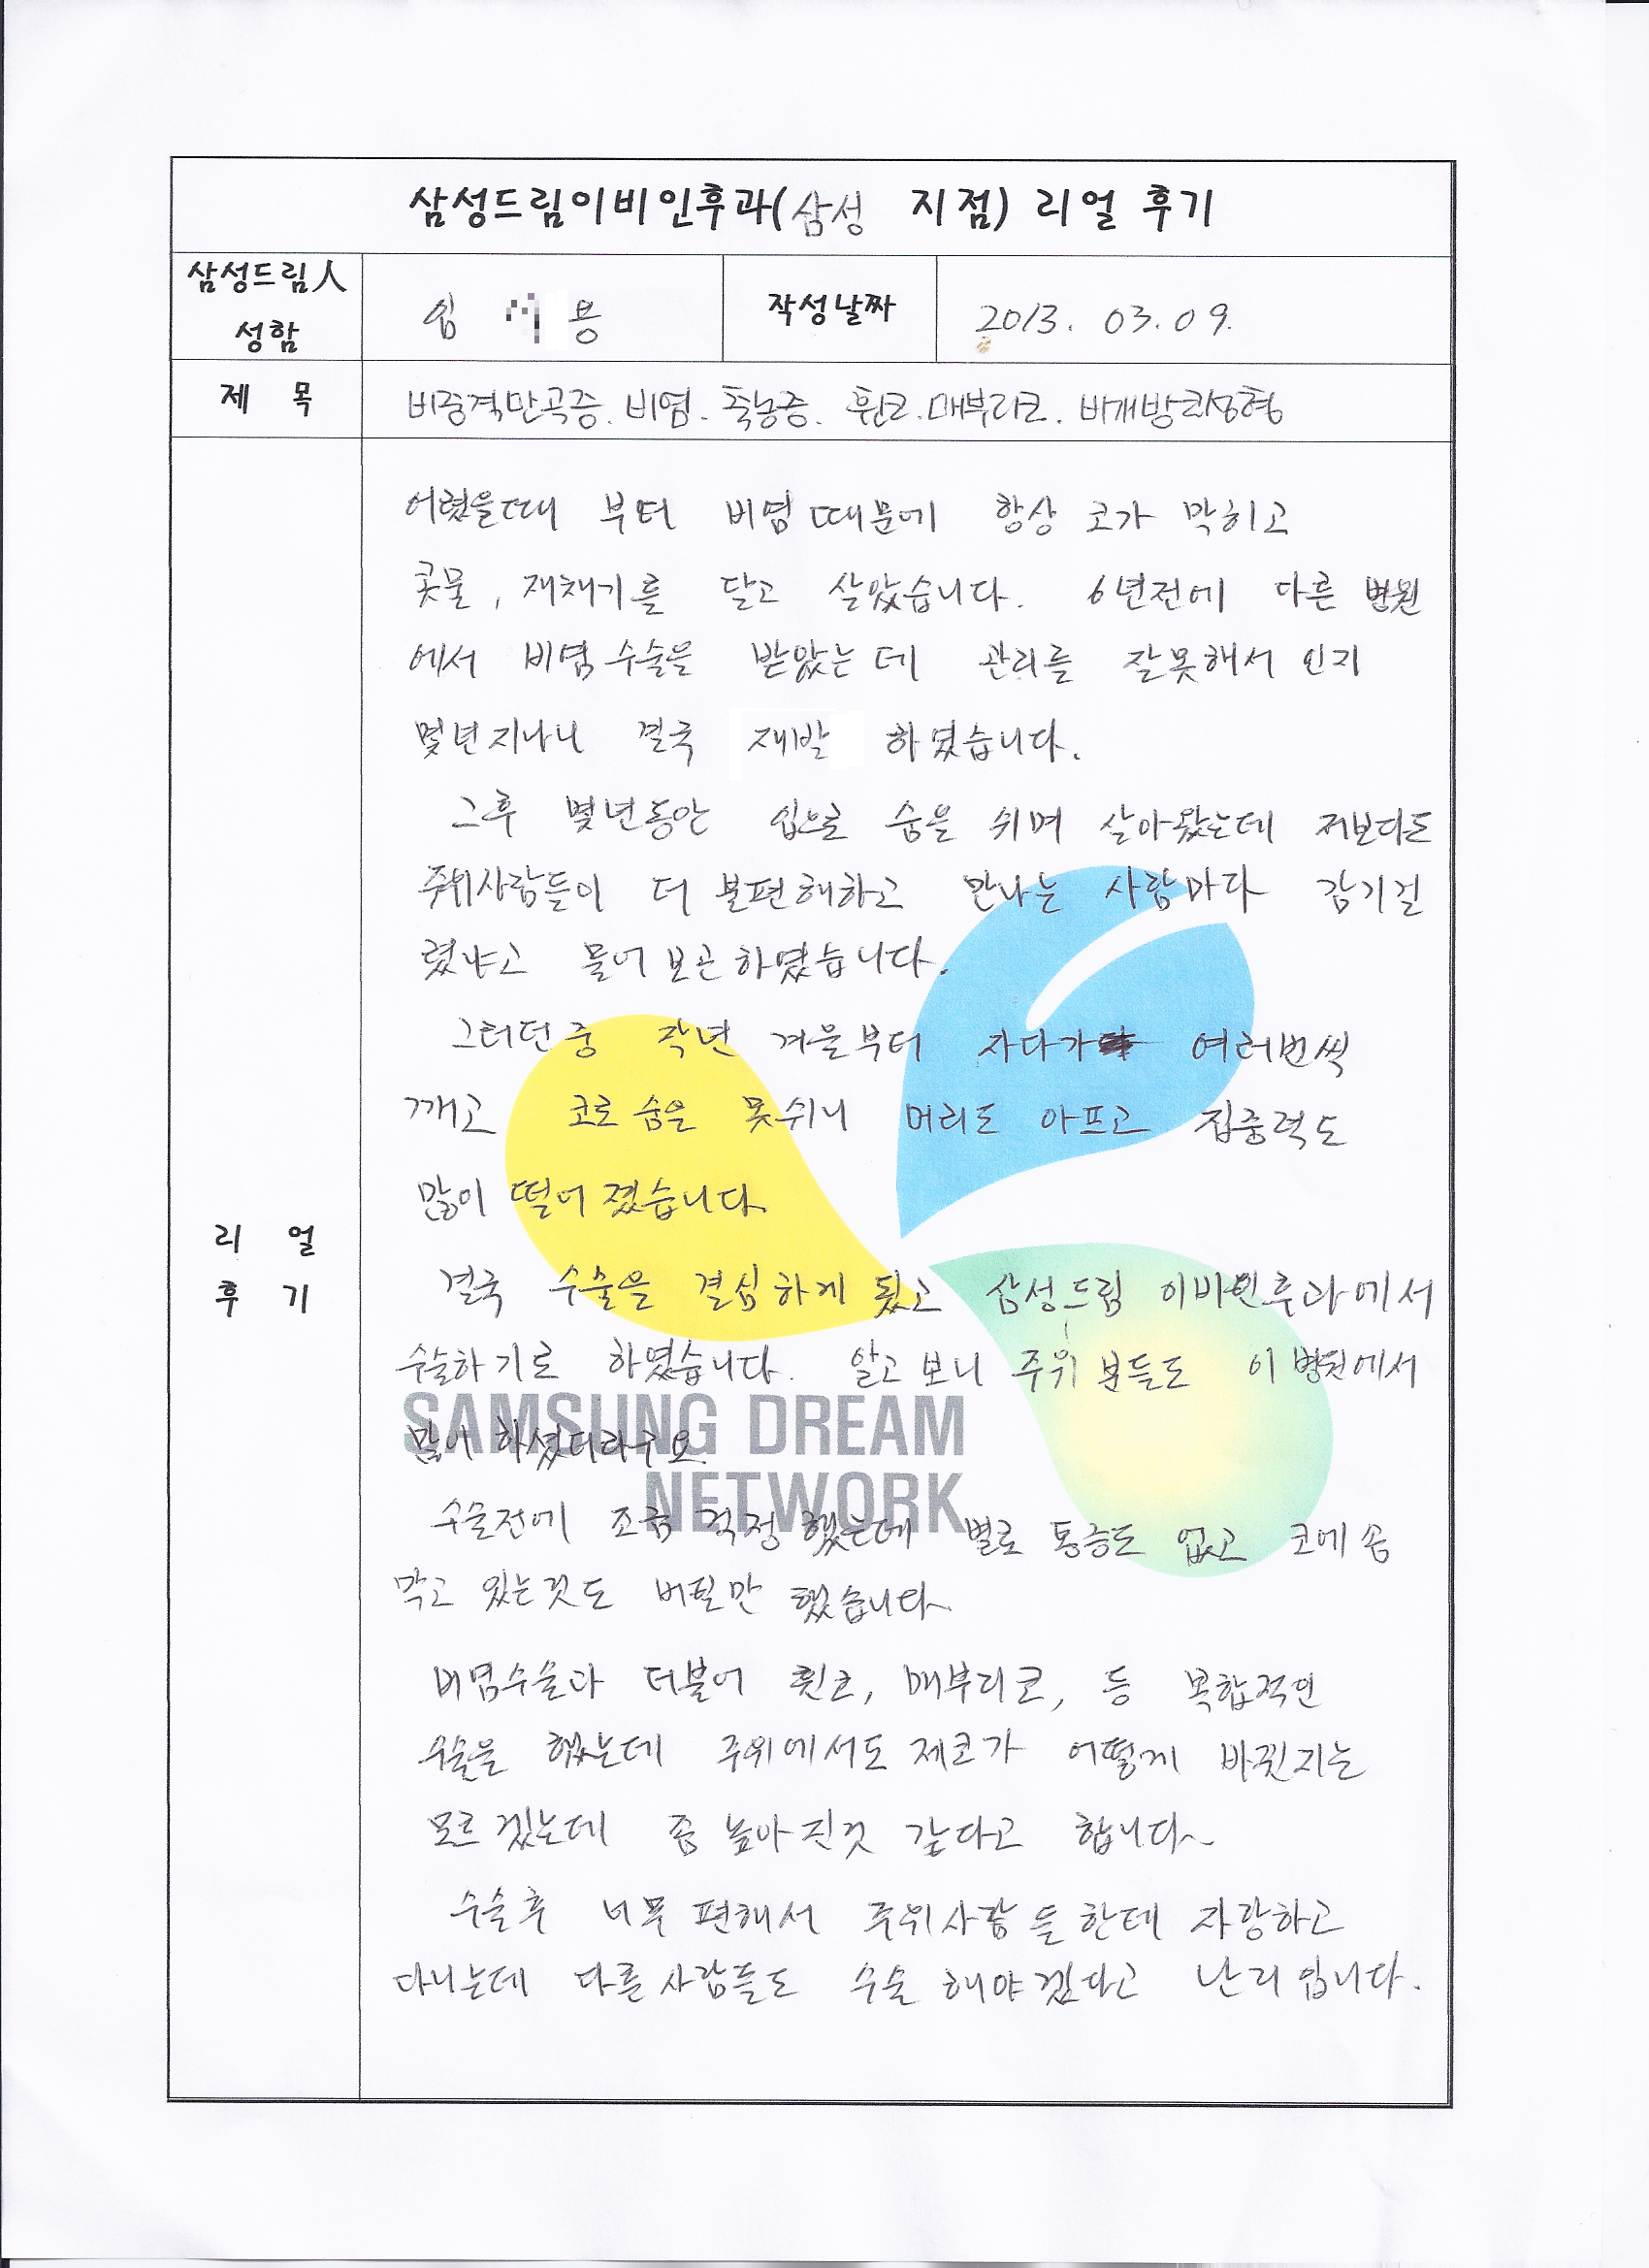 삼성드림이비인후과(삼성 지점) 리얼 후기
삼성드림人
성함
심 용
작성날짜
2013. 03. 09.
제 목
비중격만곡증. 비염. 축농증. 휜코. 매부리코. 비개방코성형
어렸을때 부터 비염 때문에 항상 코가 막히고
콧물, 재채기를 달고 살았습니다. 6년전에 다른 병원
에서 비염수술을 받았는데 관리를 잘못해서 인지
몇년지나니 결국 재발 하였습니다.
그후 몇년동안 입으로 숨을 쉬며 살아왔는데 저보다도
주위사람들이 더 불편해하고 만나는 사람마다 감기걸
렸냐고 물어 보곤하였습니다.
그러던중 작년 겨울부터 자다가 여러번씩
깨고 코로 숨을 못쉬니 머리도 아프고 집중력도
많이 떨어 졌습니다.
리 얼
후 기
결국 수술을 결심하게 됬고 삼성드림 이비인후과에서
수술하기로 하였습니다. 알고보니 주위 분들도 이 병원에서
많이 하셨더라구요.
SAMSUNG DREAM
NETWORK
수술전에 조금 걱정 했는데 별로 통증도 없고 코에 솜
막고 있는것도 버틸만 했습니다~
비염수술과 더불어 휜코, 매부리코, 등 복합적인
수술을 했는데 주위에서도 제코가 어떻게 바뀐지는
모르겠는데 좀 높아진것 같다고 합니다~
수술후 너무 편해서 주위사람 들한테 자랑하고
다니는데 다른사람들도 수술 해야겠다고 난리입니다.